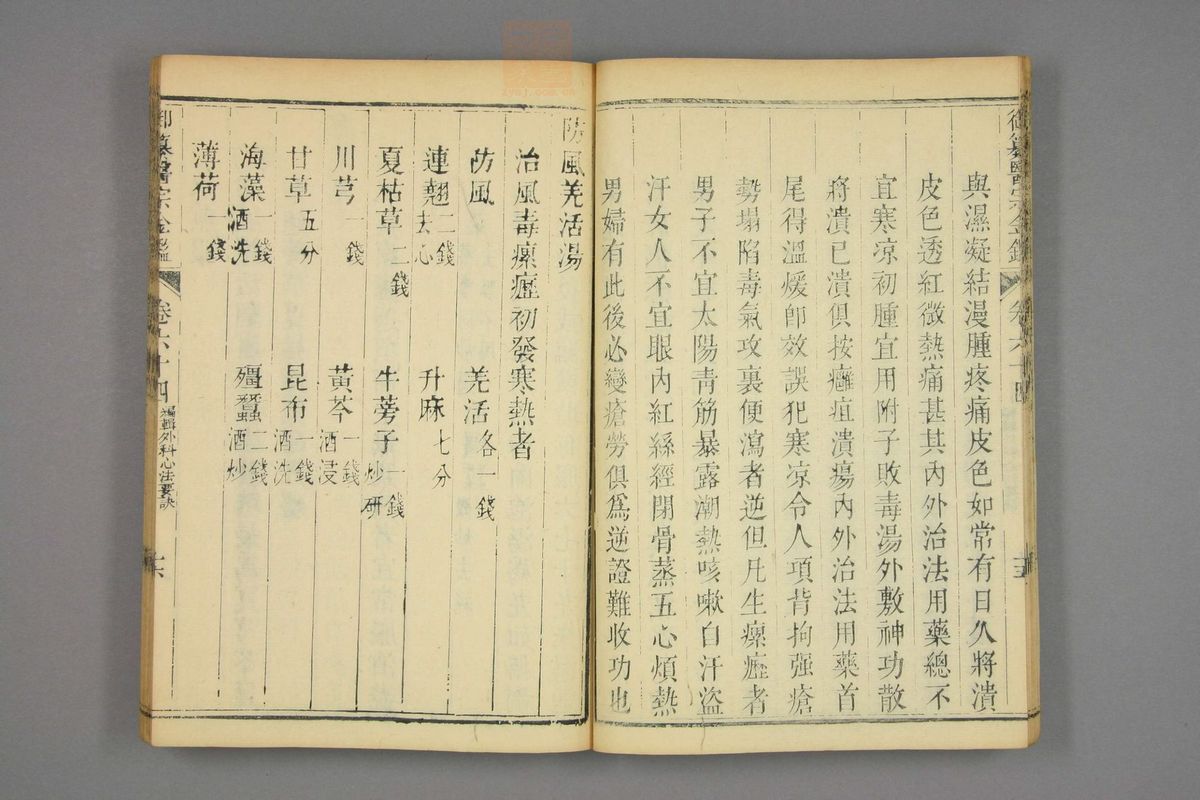 御纂醫宗金鑑 卷六十四 十五
與濕凝結漫腫疼痛皮色如常有日久將潰
皮色透紅微熱痛甚其內外治法用藥總不
宜寒凉初腫宜用附子敗毒湯外敷神功散
將潰已潰俱按癰疽潰瘍內外治法用藥首
尾得溫煖卽效誤犯寒凉令人項背拘强瘡
勢塌陷毒氣攻裏便瀉者逆但凡生瘰癧者
男子不宜太陽靑筋暴露潮熱咳嗽自汗盜
汗女人不宜眼內紅絲經閉骨蒸五心煩熱
男婦有此後必變瘡勞俱爲逆證難收功也
防風羌活湯
治風毒瘰癧初發寒熱者
防風 羌活各一錢
連翹二錢去心 升麻七分
夏枯草二錢 牛蒡子一錢炒研
川芎一錢 黃芩一錢酒浸
甘草五分 昆布一錢酒洗
海藻一錢酒洗 殭蠶二錢酒炒
薄荷一錢
御纂醫宗金鑑 卷六十四 編輯外科心法要訣 十六